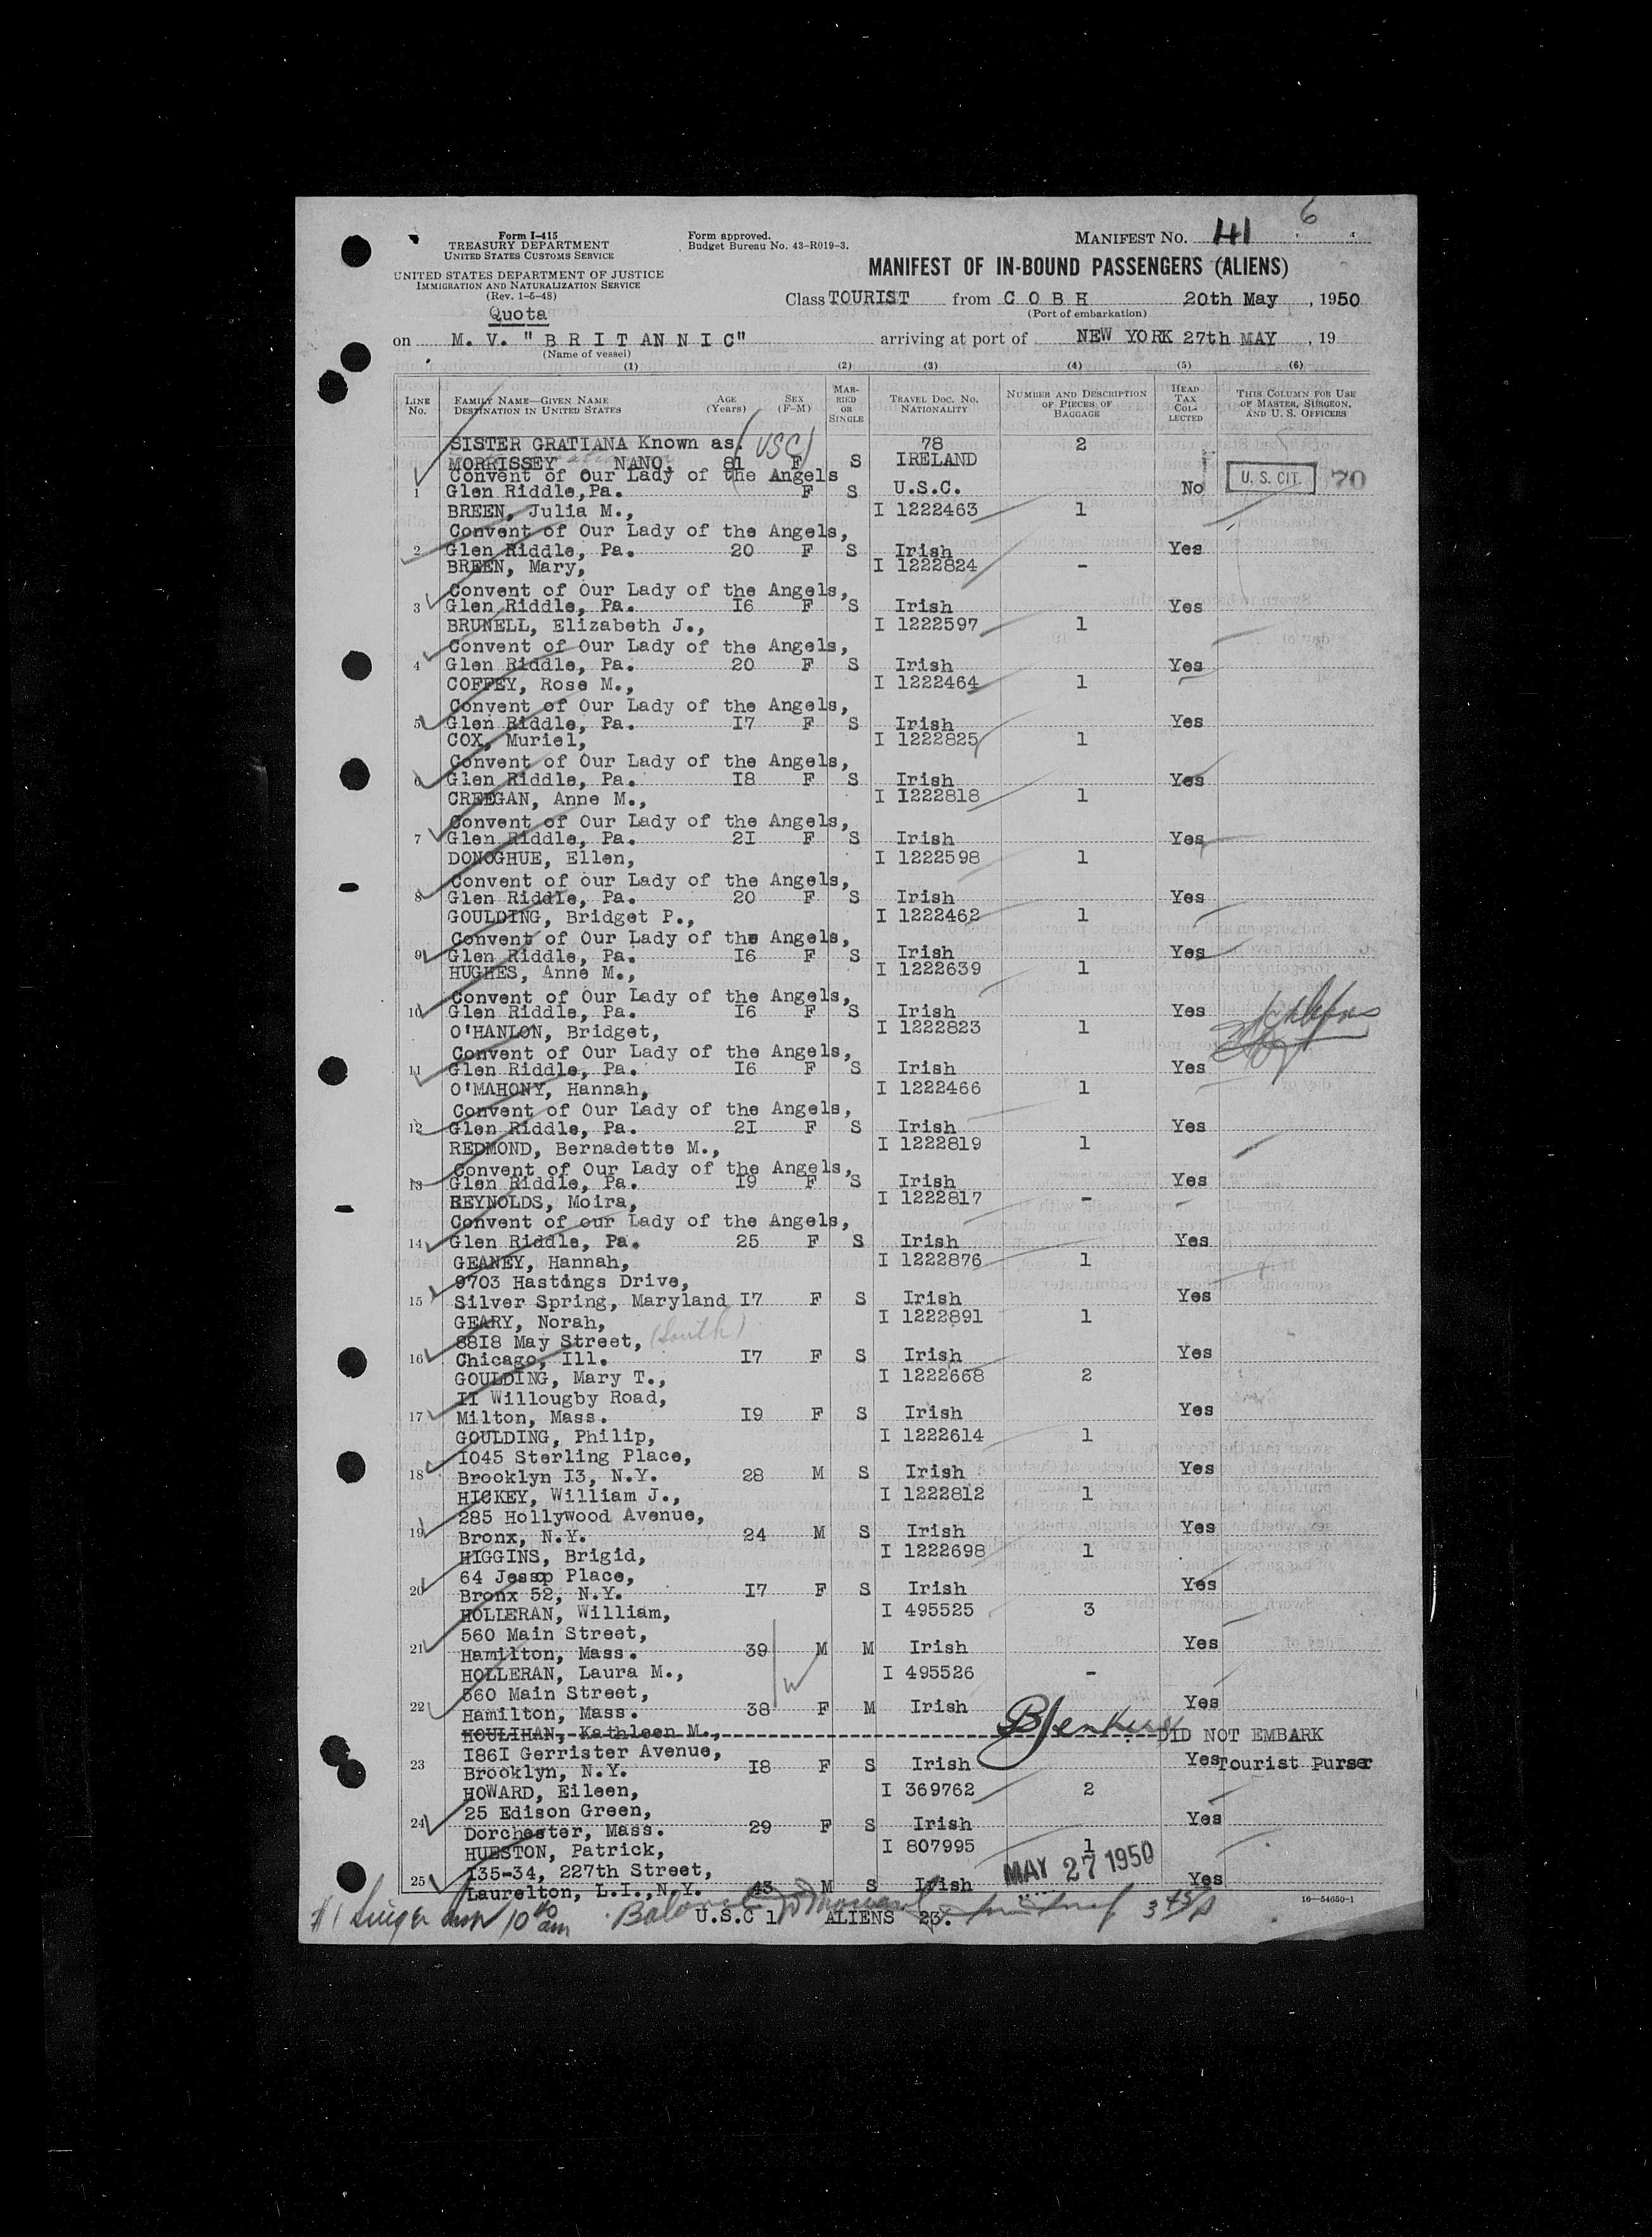 6
Form I-415
TREASURY DEPARTMENT
UNITED STATES CUSTOMS SERVICE
Form approved.
Budget Bureau No. 43-R019-3.
MANIFEST NO. 141
UNITED STATES DEPARTMENT OF JUSTICE
IMMIGRATION AND NATURALIZATION SERVICE
(Rev. 1-5-48)
MANIFEST OF IN-BOUND PASSENGERS (ALIENS)
Quota
Class TOURIST from C O B H 20th May , 1950
(Port of embarkation)
on M. V. "B R I T A N N I C" arriving at port of NEW YORK 27th MAY , 19
(Name of vessel)
(1) (2) (3) (4) (5) (6)
LINE No. FAMILY NAME—GIVEN NAME DESTINATION IN UNITED STATES AGE (Years) SEX (F-M) MARRIED OR SINGLE TRAVEL DOC. NO. NATIONALITY NUMBER AND DESCRIPTION OF PIECES OF BAGGAGE HEAD TAX COLLECTED THIS COLUMN FOR USE OF MASTER, SURGEON, AND U. S. OFFICERS
SISTER GRATIANA Known as (USC) 78 2
MORRISSEY NANO, 81 F S IRELAND
Convent of Our Lady of the Angels
1 Glen Riddle,Pa. F S U.S.C. No U. S. CIT. 70
BREEN, Julia M., I 1222463 1
Convent of Our Lady of the Angels,
2 Glen Riddle, Pa. 20 F S Irish Yes
BREEN, Mary, I 1222824 -
Convent of Our Lady of the Angels,
3 Glen Riddle, Pa. I6 F S Irish Yes
BRUNELL, Elizabeth J., I 1222597 1
Convent of Our Lady of the Angels,
4 Glen Riddle, Pa. 20 F S Irish Yes
COFFEY, Rose M., I 1222464 1
Convent of Our Lady of the Angels,
5 Glen Riddle, Pa. I7 F S Irish Yes
COX, Muriel, I 1222825 1
Convent of Our Lady of the Angels,
6 Glen Riddle, Pa. I8 F S Irish Yes
CREEGAN, Anne M., I I222818 1
Convent of Our Lady of the Angels,
7 Glen Riddle, Pa. 2I F S Irish Yes
DONOGHUE, Ellen, I 1222598 1
Convent of our Lady of the Angels,
8 Glen Riddle, Pa. 20 F S Irish Yes
GOULDING, Bridget P., I 1222462 1
Convent of Our Lady of the Angels,
9 Glen Riddle, Pa. I6 F S Irish Yes
HUGHES, Anne M., I 1222639 1
Convent of Our Lady of the Angels,
10 Glen Riddle, Pa. I6 F S Irish Yes
O'HANLON, Bridget, I 1222823 1
Convent of Our Lady of the Angels,
11 Glen Riddle, Pa. I6 F S Irish Yes
O'MAHONY, Hannah, I 1222466 1
Convent of Our Lady of the Angels,
12 Glen Riddle, Pa. 2I F S Irish Yes
REDMOND, Bernadette M., I 1222819 1
Convent of Our Lady of the Angels,
13 Glen Riddle, Pa. I9 F S Irish Yes
REYNOLDS, Moira, I 1222817 -
Convent of our Lady of the Angels,
14 Glen Riddle, Pa. 25 F S Irish Yes
GEANEY, Hannah, I 1222876 1
9703 Hastings Drive,
15 Silver Spring, Maryland I7 F S Irish Yes
GEARY, Norah, I 1222891 1
88I8 May Street, (South)
16 Chicago, Ill. I7 F S Irish Yes
GOULDING, Mary T., I 1222668 2
II Willougby Road,
17 Milton, Mass. I9 F S Irish Yes
GOULDING, Philip, I 1222614 1
I045 Sterling Place,
18 Brooklyn I3, N.Y. 28 M S Irish Yes
HICKEY, William J., I 1222812 1
285 Hollywood Avenue,
19 Bronx, N.Y. 24 M S Irish Yes
HIGGINS, Brigid, I 1222698 1
64 Jessop Place,
20 Bronx 52, N.Y. I7 F S Irish Yes
HOLLERAN, William, I 495525 3
560 Main Street,
21 Hamilton, Mass. 39 M M Irish Yes
HOLLERAN, Laura M., I 495526 -
560 Main Street,
22 Hamilton, Mass. 38 F M Irish Yes
HOULIHAN, Kathleen M., BJenkins DID NOT EMBARK
I86I Gerrister Avenue,
23 Brooklyn, N.Y. I8 F S Irish Yes Tourist Purser
HOWARD, Eileen, I 369762 2
25 Edison Green,
24 Dorchester, Mass. 29 F S Irish Yes
HUESTON, Patrick, I 807995 1
I35-34, 227th Street, MAY 27 1950
25 Laurelton, L.I.,N.Y. 43 M S Irish Yes
16—54650-1
U.S.C 1 ALIENS 23.
10 00 am
3 45/P